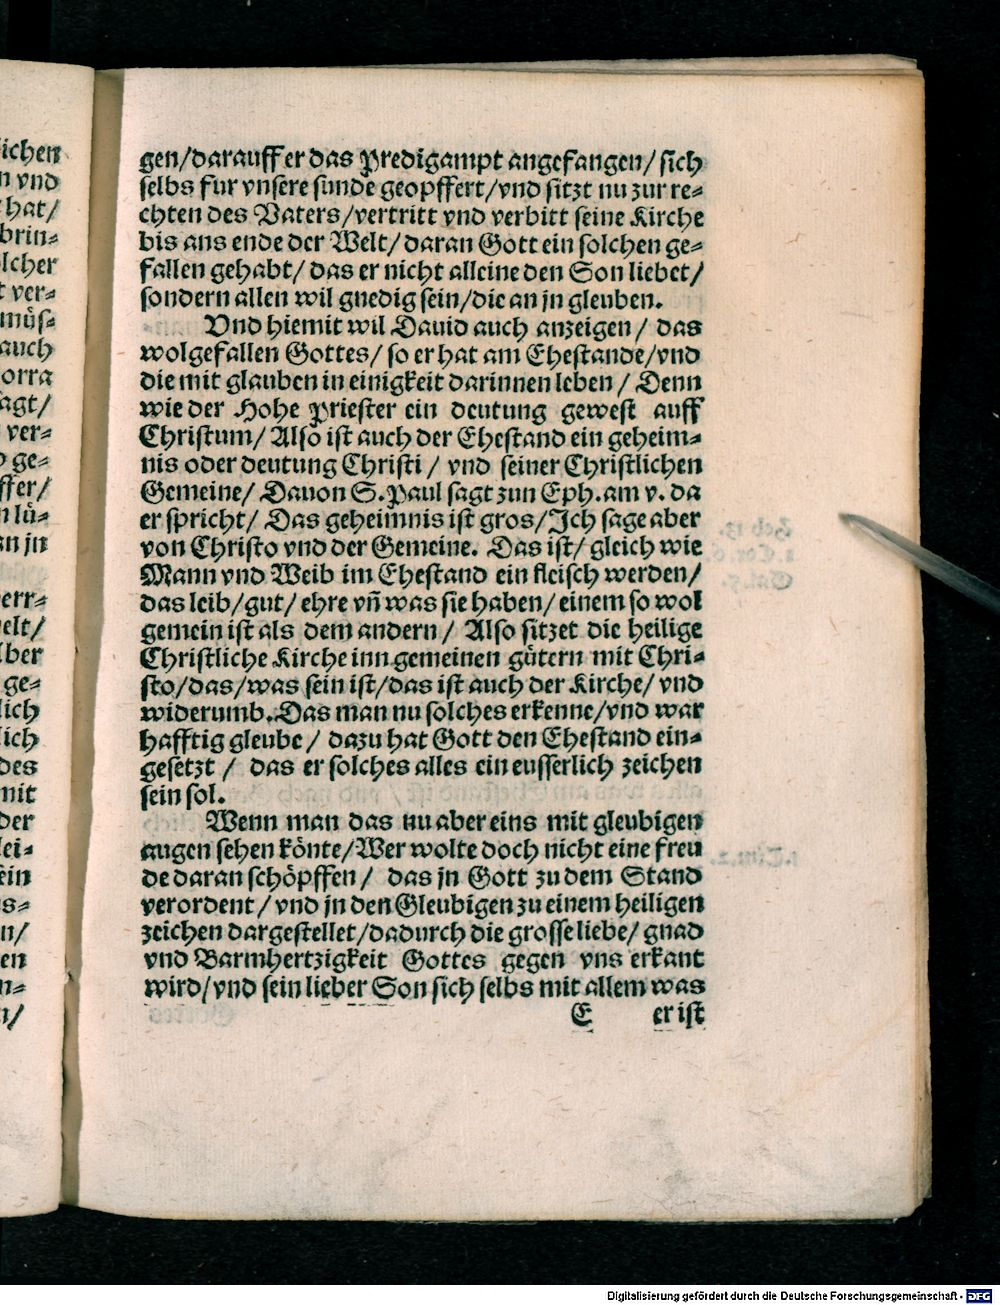 gen/darauff er das Predigampt angefangen/ sich
selbs fur vnsere sunde geopffert/vnd sitzt nu zur re-
chten des Vaters/vertritt vnd verbitt seine Kirche
bis ans ende der Welt/ daran Gott ein solchen ge-
fallen gehabt/ das er nicht alleine den Son liebet/
sondern allen wil gnedig sein/die an jn gleuben.
Vnd hiemit wil Dauid auch anzeigen/ das
wolgefallen Gottes/ so er hat am Ehestande/vnd
die mit glauben in einigkeit darinnen leben/ Denn
wie der Hohe Priester ein deutung gewest auff
Christum/ Also ist auch der Ehestand ein geheim-
nis oder deutung Christi/ vnd seiner Christlichen
Gemeine/ Dauon S. Paul sagt zun Eph. am v. da
er spricht/ Das geheimnis ist gros/Ich sage aber
von Christo vnd der Gemeine. Das ist/ gleich wie
Mann vnd Weib im Ehestand ein fleisch werden/
das leib/gut/ ehre vñ was sie haben/ einem so wol
gemein ist als dem andern/ Also sitzet die heilige
Christliche Kirche inn gemeinen gütern mit Chri-
sto/das/was sein ist/das ist auch der Kirche/ vnd
widerumb. Das man nu solches erkenne/vnd war
hafftig gleube/ dazu hat Gott den Ehestand ein-
gesetzt/ das er solches alles ein eusserlich zeichen
sein sol.
Wenn man das nu aber eins mit gleubigen
augen sehen könte/Wer wolte doch nicht eine freu
de daran schöpffen/ das jn Gott zu dem Stand
verordent/vnd jn den Gleubigen zu einem heiligen
zeichen dargestellet/dadurch die grosse liebe/ gnad
vnd Barmhertzigkeit Gottes gegen vns erkant
wird/vnd sein lieber Son sich selbs mit allem was
E er ist
ichen
vnd
hat/
brin-
lcher
ver-
müs-
auch
orra
agt/
ver-
ge-
ffer/
lü-
an jn
err-
elt/
lber
ge-
lich
lich
des
mit
der
lei-
ein
s-
n/
en
n-
n/
Digitalisierung gefördert durch die Deutsche Forschungsgemeinschaft - DFG